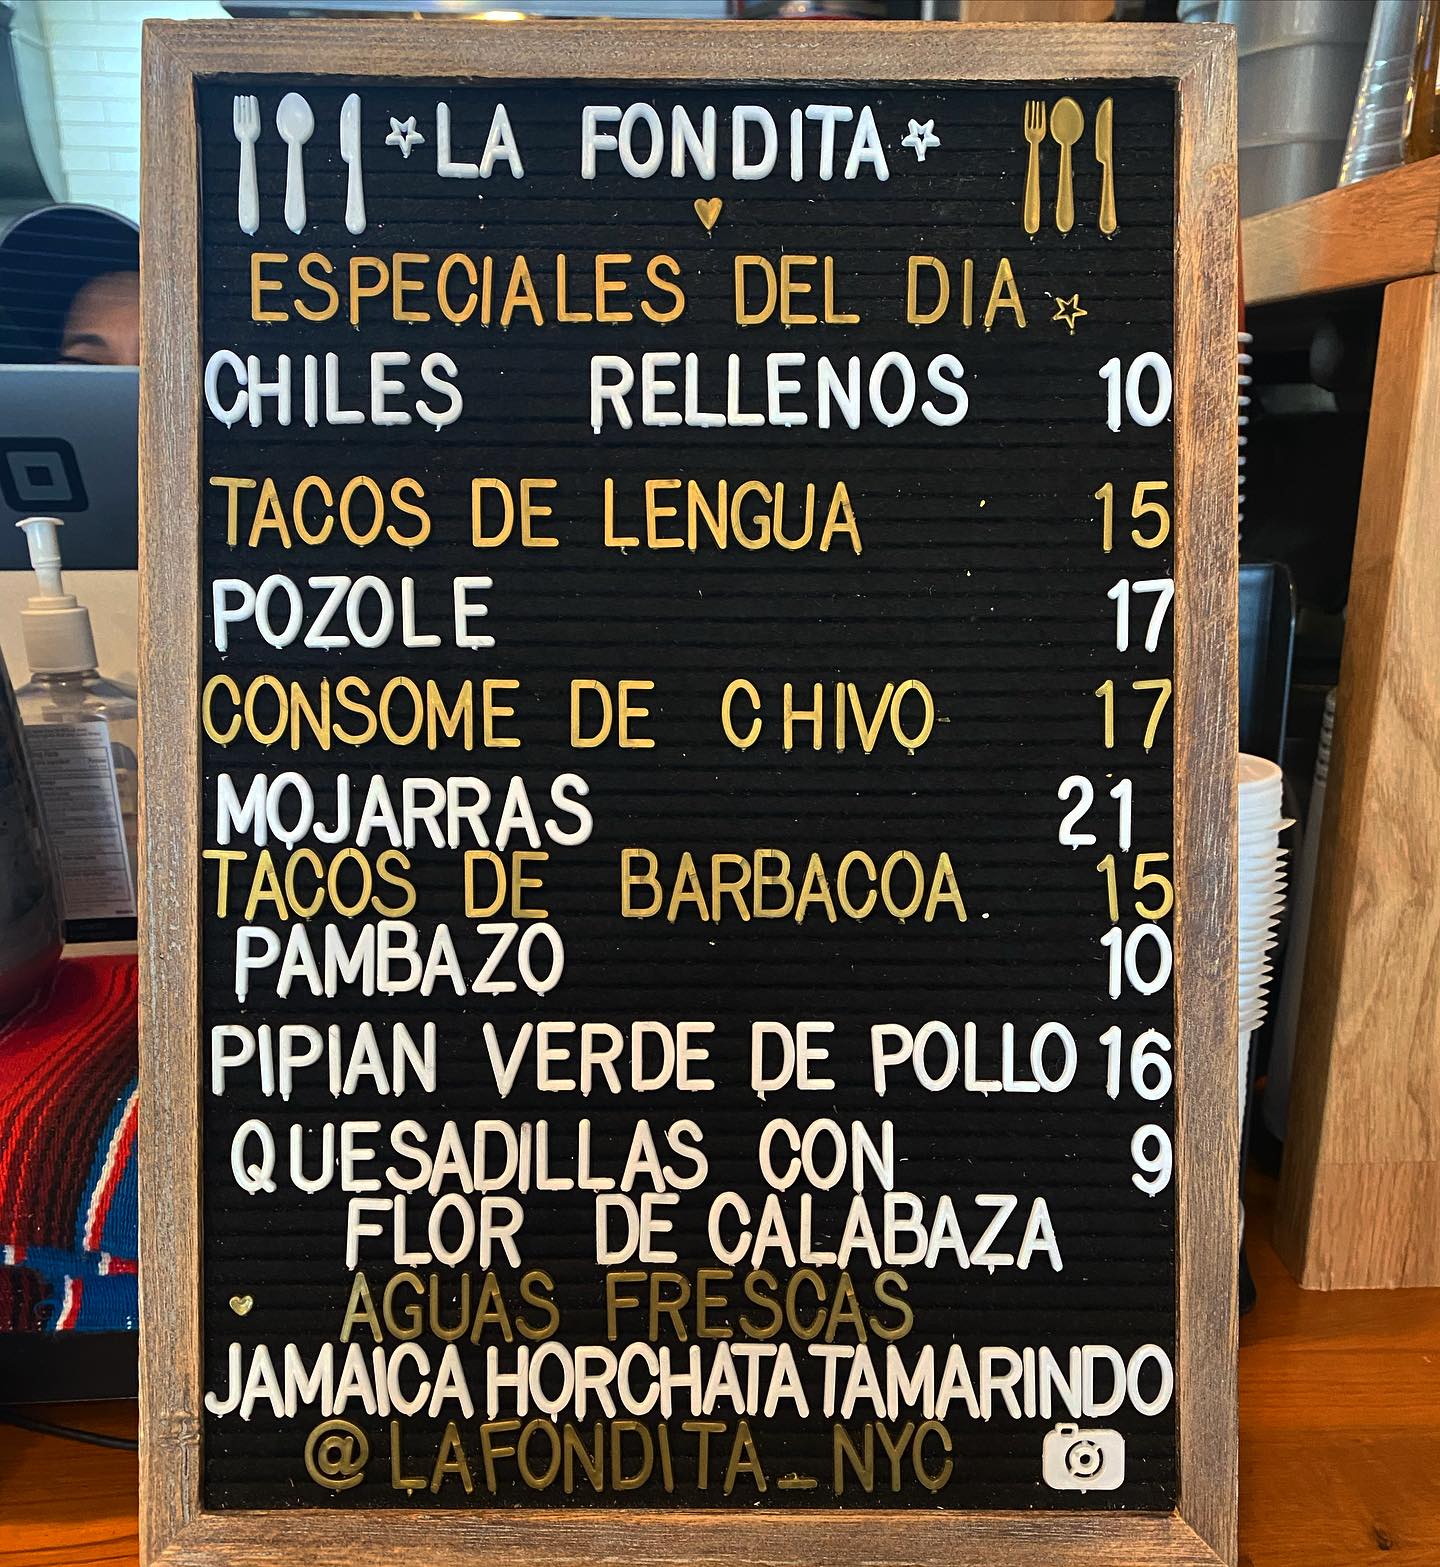 LA FONDITA
ESPECIALES DEL DIA
CHILES RELLENOS 10
TACOS DE LENGUA 15
POZOLE 17
CONSOME DE CHIVO 17
MOJARRAS 21
TACOS DE BARBACOA 15
PAMBAZO 10
PIPIAN VERDE DE POLLO 16
QUESADILLAS CON 9
FLOR DE CALABAZA
AGUAS FRESCAS
JAMAICA HORCHATA TAMARINDO
@LAFONDITA_NYC